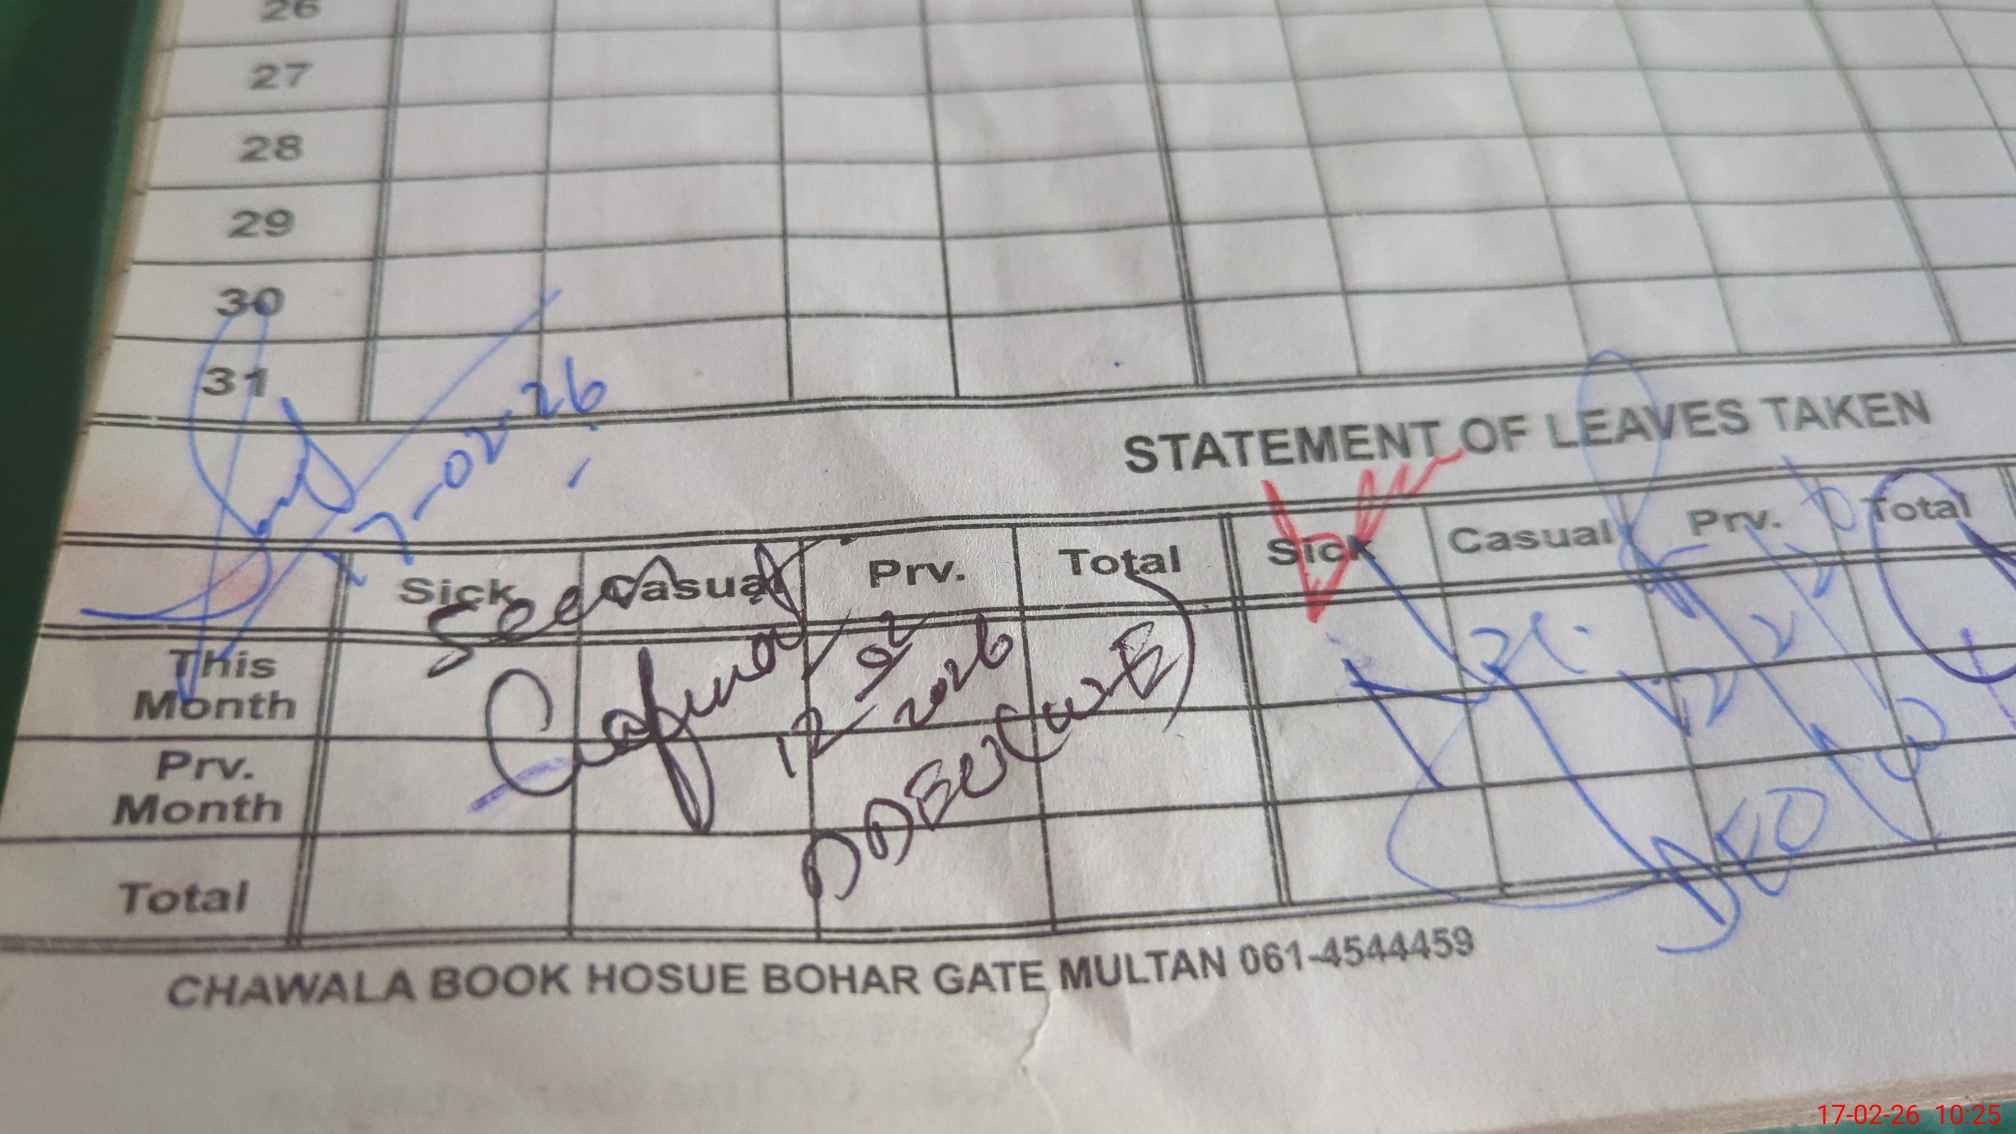 26
27
28
29
30
31
17-02-26
STATEMENT OF LEAVES TAKEN
Sick Casual Prv. Total Sick Casual Prv. Total
Seen
This Month
12-02-2026
Prv. Month
Total
CHAWALA BOOK HOSUE BOHAR GATE MULTAN 061-4544459
17-02-26 10:25